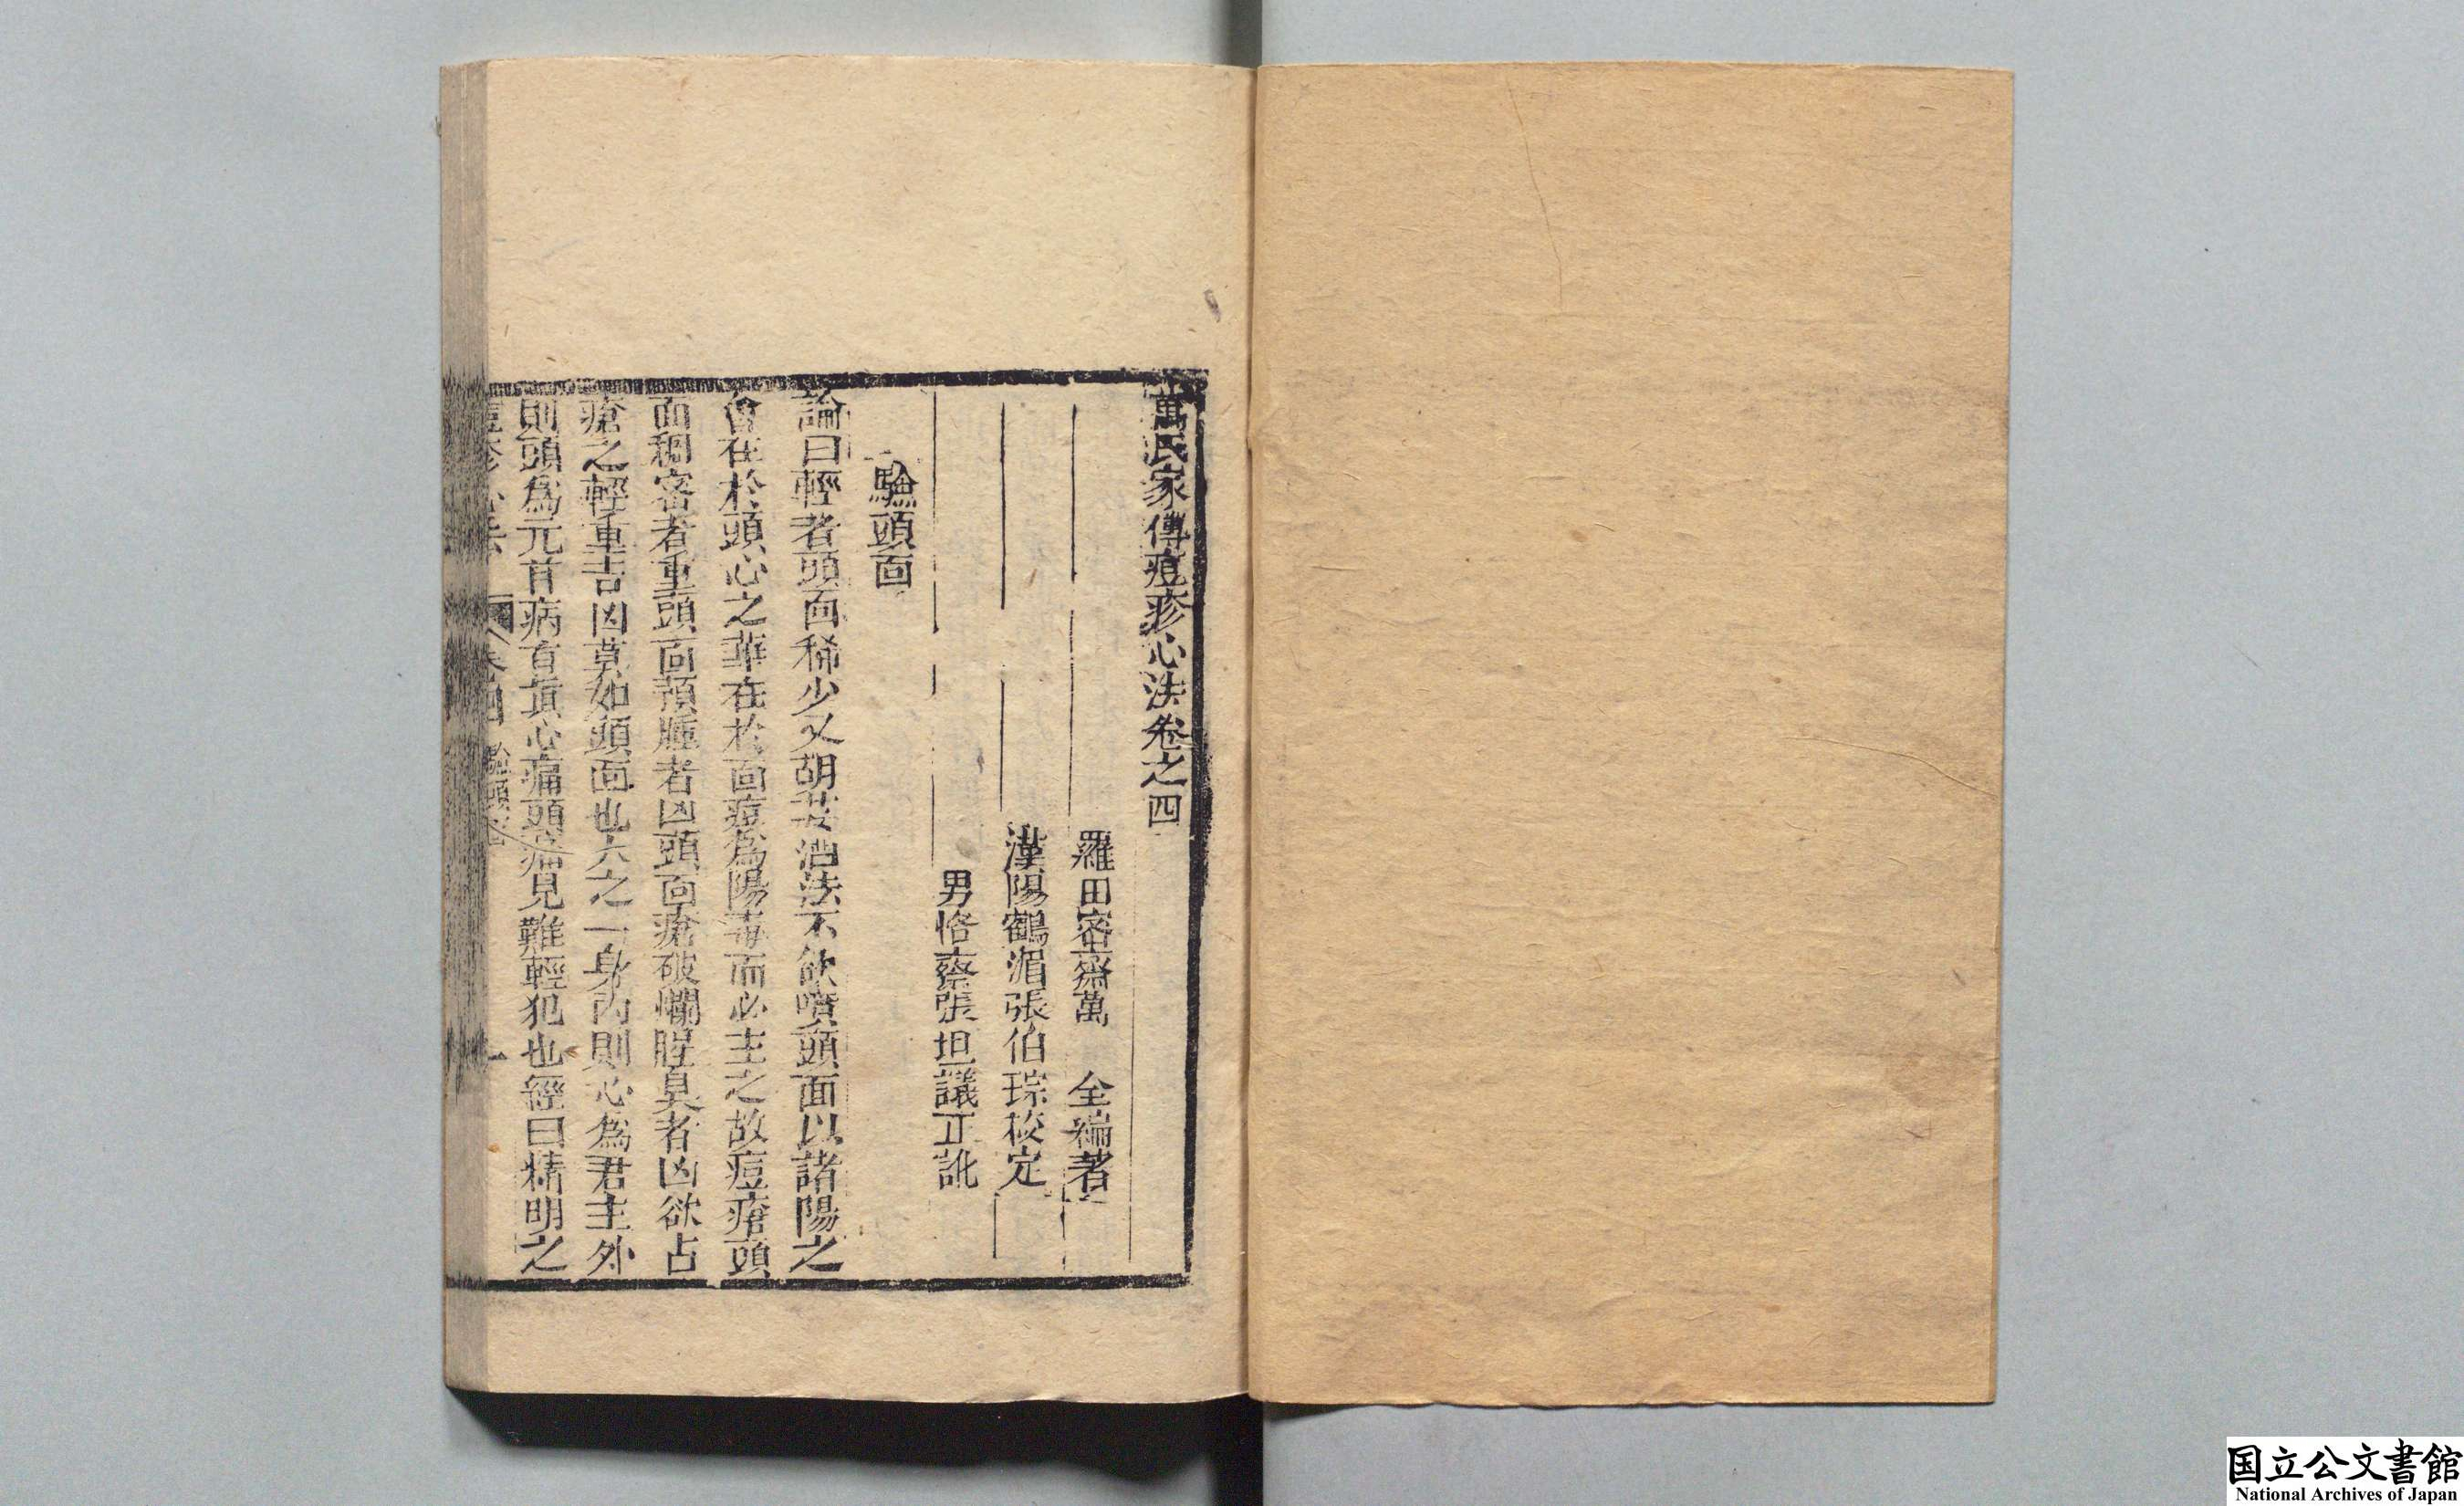 萬氏家傳痘疹心法卷之四
羅田密齋萬　全編著
漢陽鶴湄張伯琮校定
男恪齋張坦議正訛
驗頭面
論曰輕者頭面稀少又胡荽酒法不飲噴頭面以諸陽之
會在於頭心之華在於面痘為陽毒而心主之故痘瘡頭
面稠密者重頭面預腫者凶頭面瘡破爛腥臭者凶欲占
瘡之輕重吉凶莫如頭面也人之一身內則心為君主外
則頭為元首病有真心痛頭痛見難輕犯也經曰精明之
痘疹心法　卷四　驗頭面　一
国立公文書館
National Archives of Japan